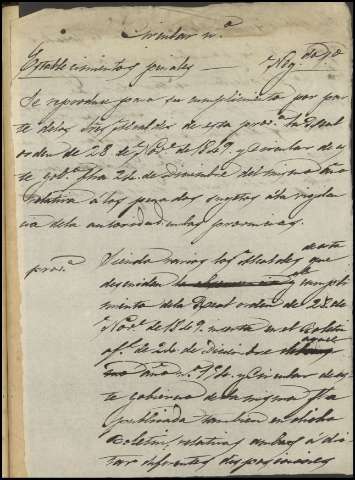 Circular n.º
Establecimientos penales Neg.do 3º
Se reproduce para su cumplimiento por par
te de los Sres. Alcaldes de esta prov.ª la Real
orden de 28 de Nov.e de 1849, y circular de es
te gob.º fha 24 de Diciembre del mismo año
relativa á los penados sugetos á la vigilan
cia de la autoridad en las provincias.
prov.ª Siendo varios los Alcaldes de esta que
descuidan la el cumpli
miento de la Real orden de 28 de
Nov.e de 1849. inserta en el Boletin
of.l de 26 de Diciembre de aquel
año n.º y Circular de es
te gobierno de la misma fha
publicada tambien en dicho
Boletin, relativas ambas a dic
tar diferentes disposiciones